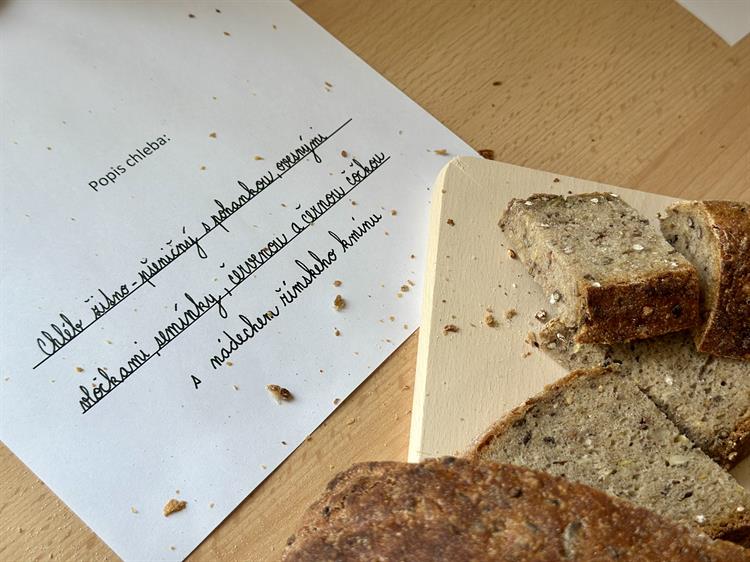 Popis chleba:
Chléb žitno-pšeničný s pohankou ovesnými
vločkami, semínky, červenou a černou čočkou
s nádechem římského kmínu